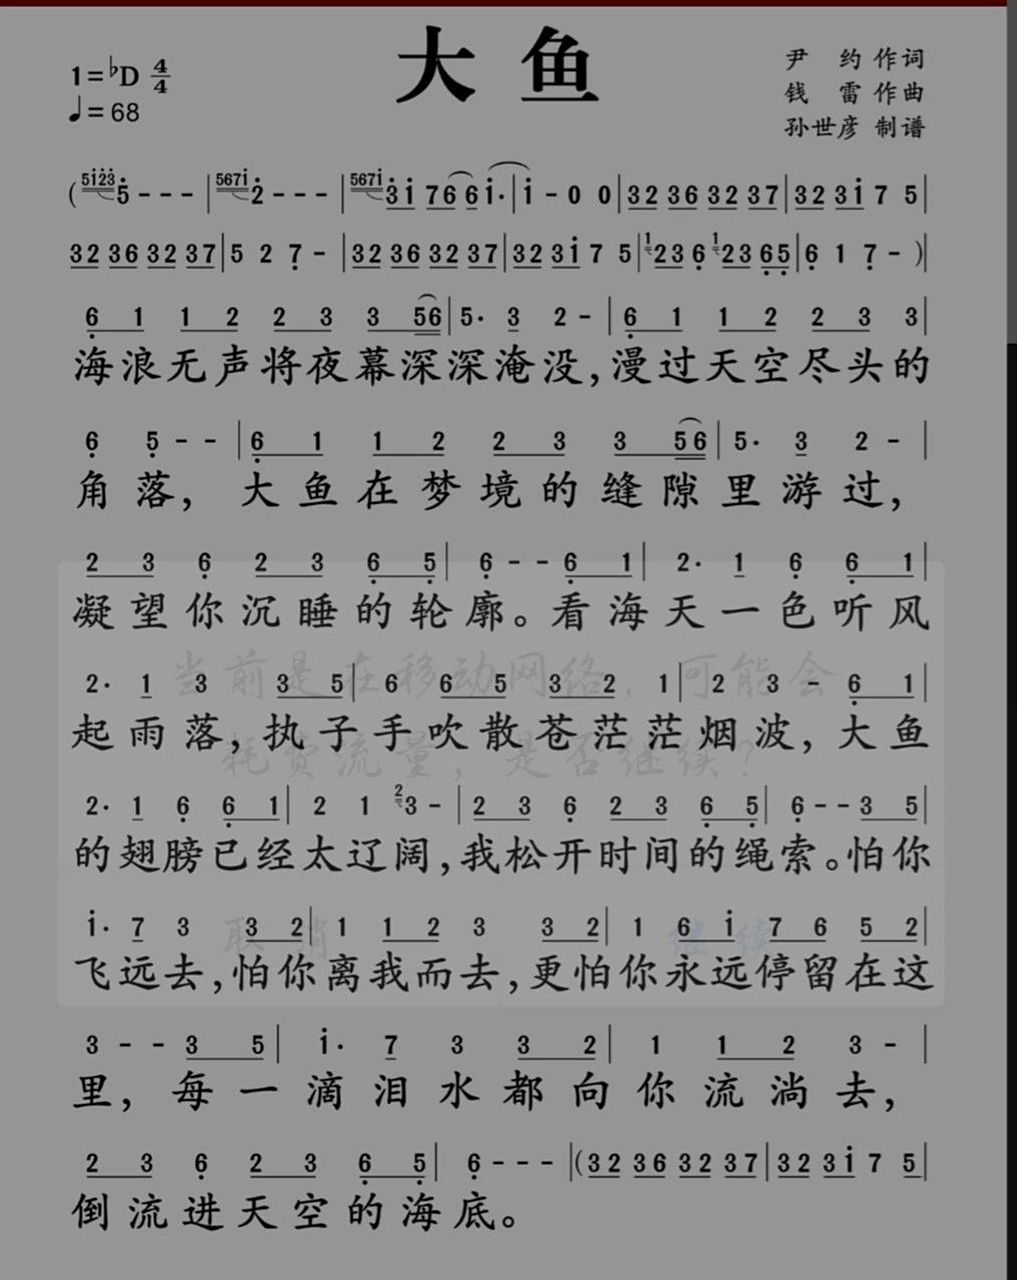 大鱼
1=♭D 4/4
♩=68
尹 约 作词
钱 雷 作曲
孙世彦 制谱
(5i̇2̇3̇5̇--- | 567i̇2̇--- | 567i̇3̇i̇ 766i̇· | i̇-0 0 | 32 36 32 37 | 32 3i̇ 7 5 |
32 36 32 37 | 5 2 7̣ - | 32 36 32 37 | 32 3i̇ 7 5 | 1 23 6̣ 1 23 6̣5̣ | 6̣ 1 7̣ - ) |
6̣ 1 1 2 2 3 3 56 | 5· 3 2 - | 6̣ 1 1 2 2 3 3 |
海浪无声将夜幕深深淹没,漫过天空尽头的
6̣ 5̣ - - | 6̣ 1 1 2 2 3 3 56 | 5· 3 2 - |
角落,大鱼在梦境的缝隙里游过,
2 3 6̣ 2 3 6̣ 5̣ | 6̣ - - 6̣ 1 | 2· 1 6̣ 6̣ 1 |
凝望你沉睡的轮廓。看海天一色听风
当前是在移动网络,可能会
2· 1 3 3 5 | 6 6 5 3 2 1 | 2 3 - 6̣ 1 |
起雨落,执子手吹散苍茫茫烟波,大鱼
耗费流量,是否继续?
2· 1 6̣ 6̣ 1 | 2 1 2 3 - | 2 3 6̣ 2 3 6̣ 5̣ | 6̣ - - 3 5 |
的翅膀已经太辽阔,我松开时间的绳索。怕你
i̇· 7 3 3 2 | 1 1 2 3 3 2 | 1 6 i̇ 7 6 5 2 |
取消 继续
飞远去,怕你离我而去,更怕你永远停留在这
3 - - 3 5 | i̇· 7 3 3 2 | 1 1 2 3 - |
里,每一滴泪水都向你流淌去,
2 3 6̣ 2 3 6̣ 5̣ | 6̣ - - - |(32 36 32 37 | 32 3i̇ 7 5 |
倒流进天空的海底。